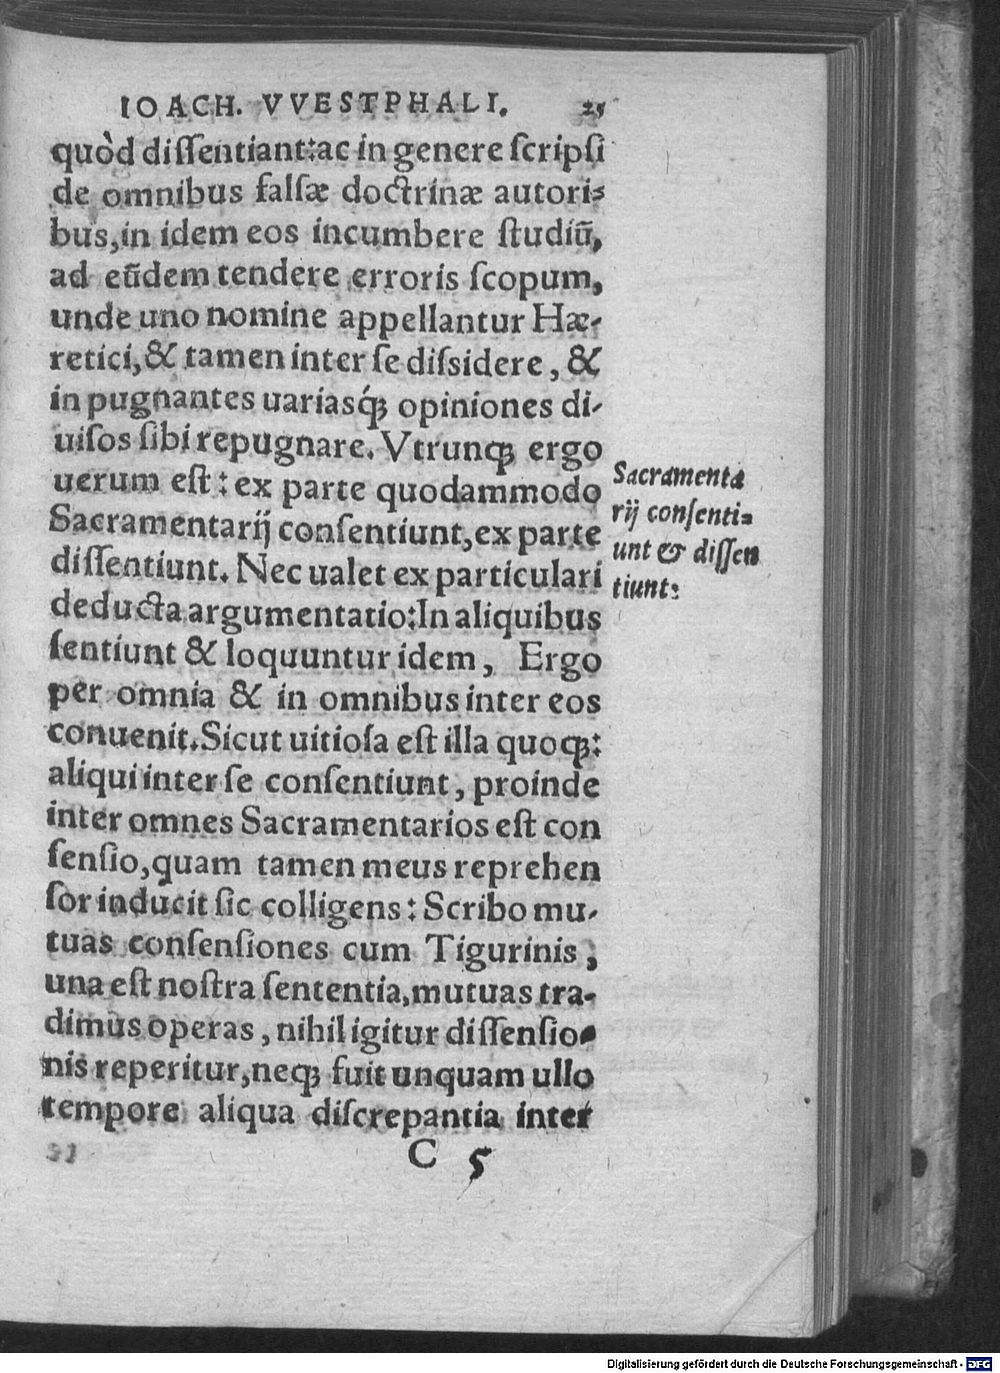 IOACH. VVESTPHALI. 25
quòd dissentiant: ac in genere scripsi
de omnibus falsæ doctrinæ autori-
bus, in idem eos incumbere studiũ,
ad eũdem tendere erroris scopum,
unde uno nomine appellantur Hæ-
retici, & tamen inter se dissidere, &
in pugnantes uariasq́; opiniones di-
uisos sibi repugnare. Vtrunq; ergo
uerum est: ex parte quodammodo
Sacramentarij consentiunt, ex parte
dissentiunt. Nec ualet ex particulari
deducta argumentatio: In aliquibus
sentiunt & loquuntur idem, Ergo
per omnia & in omnibus inter eos
conuenit. Sicut uitiosa est illa quoq;:
aliqui inter se consentiunt, proinde
inter omnes Sacramentarios est con
sensio, quam tamen meus reprehen
sor inducit sic colligens: Scribo mu-
tuas consensiones cum Tigurinis,
una est nostra sententia, mutuas tra-
dimus operas, nihil igitur dissensio-
nis reperitur, neq; fuit unquam ullo
tempore aliqua discrepantia inter
C 5
Sacramenta
rij consenti-
unt & dissen
tiunt:
Digitalisierung gefördert durch die Deutsche Forschungsgemeinschaft - DFG